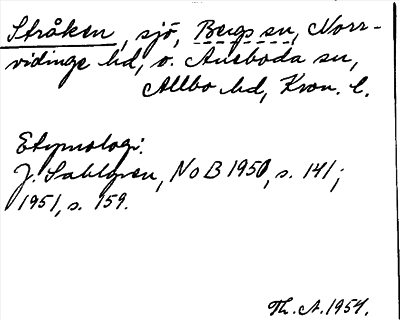 Stråken, sjö, Bergs sn, Norr-
vidinge hd, o. Aneboda sn,
Allbo hd, Kron. l.
Etymologi:
J. Sahlgren, NoB 1950, s. 141;
1951, s. 159.
Th. A. 1954.